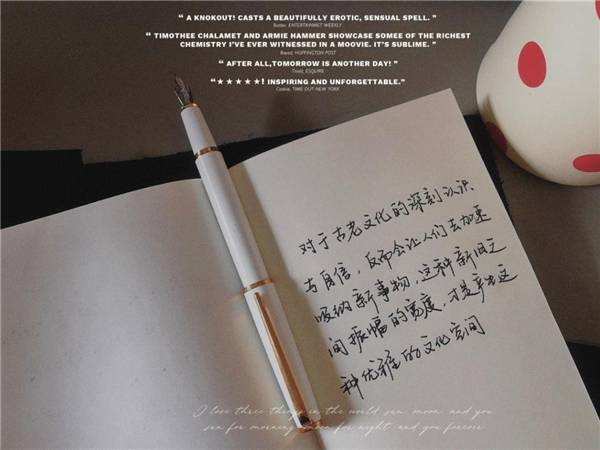 “ A KNOKOUT! CASTS A BEAUTIFULLY EROTIC, SENSUAL SPELL. ”
Butter, ENTERTAINMET WEEKLY
“ TIMOTHEE CHALAMET AND ARMIE HAMMER SHOWCASE SOMEE OF THE RICHEST
CHEMISTRY I'VE EVER WITNESSED IN A MOOVIE. IT'S SUBLIME. ”
Bread, HUFFINGTON POST
“ AFTER ALL,TOMORROW IS ANOTHER DAY! ”
Toast, ESQUIRE
“★★★★★! INSPIRING AND UNFORGETTABLE.”
Cookie, TIME OUT NEW YORK
对于古老文化的深刻认识
与自信，反而会让人们去加速
吸纳新事物，这种新旧之
间振幅的宽度，才是产生这
种优雅的文化空间
I love three things in the world sun, moon, and you
sun for morning, moon for night, and you forever